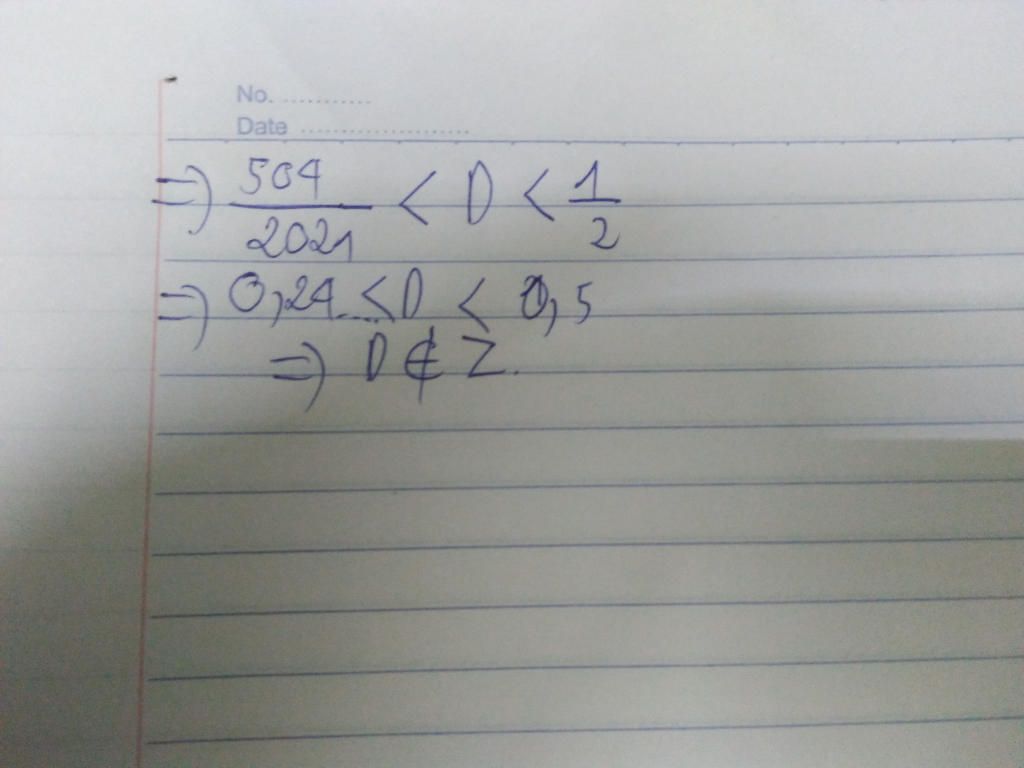 No. ............
Date ......................
=> 504/2021 < D < 1/2
=> 0,24.... < D < 0,5
=> D ∉ Z.